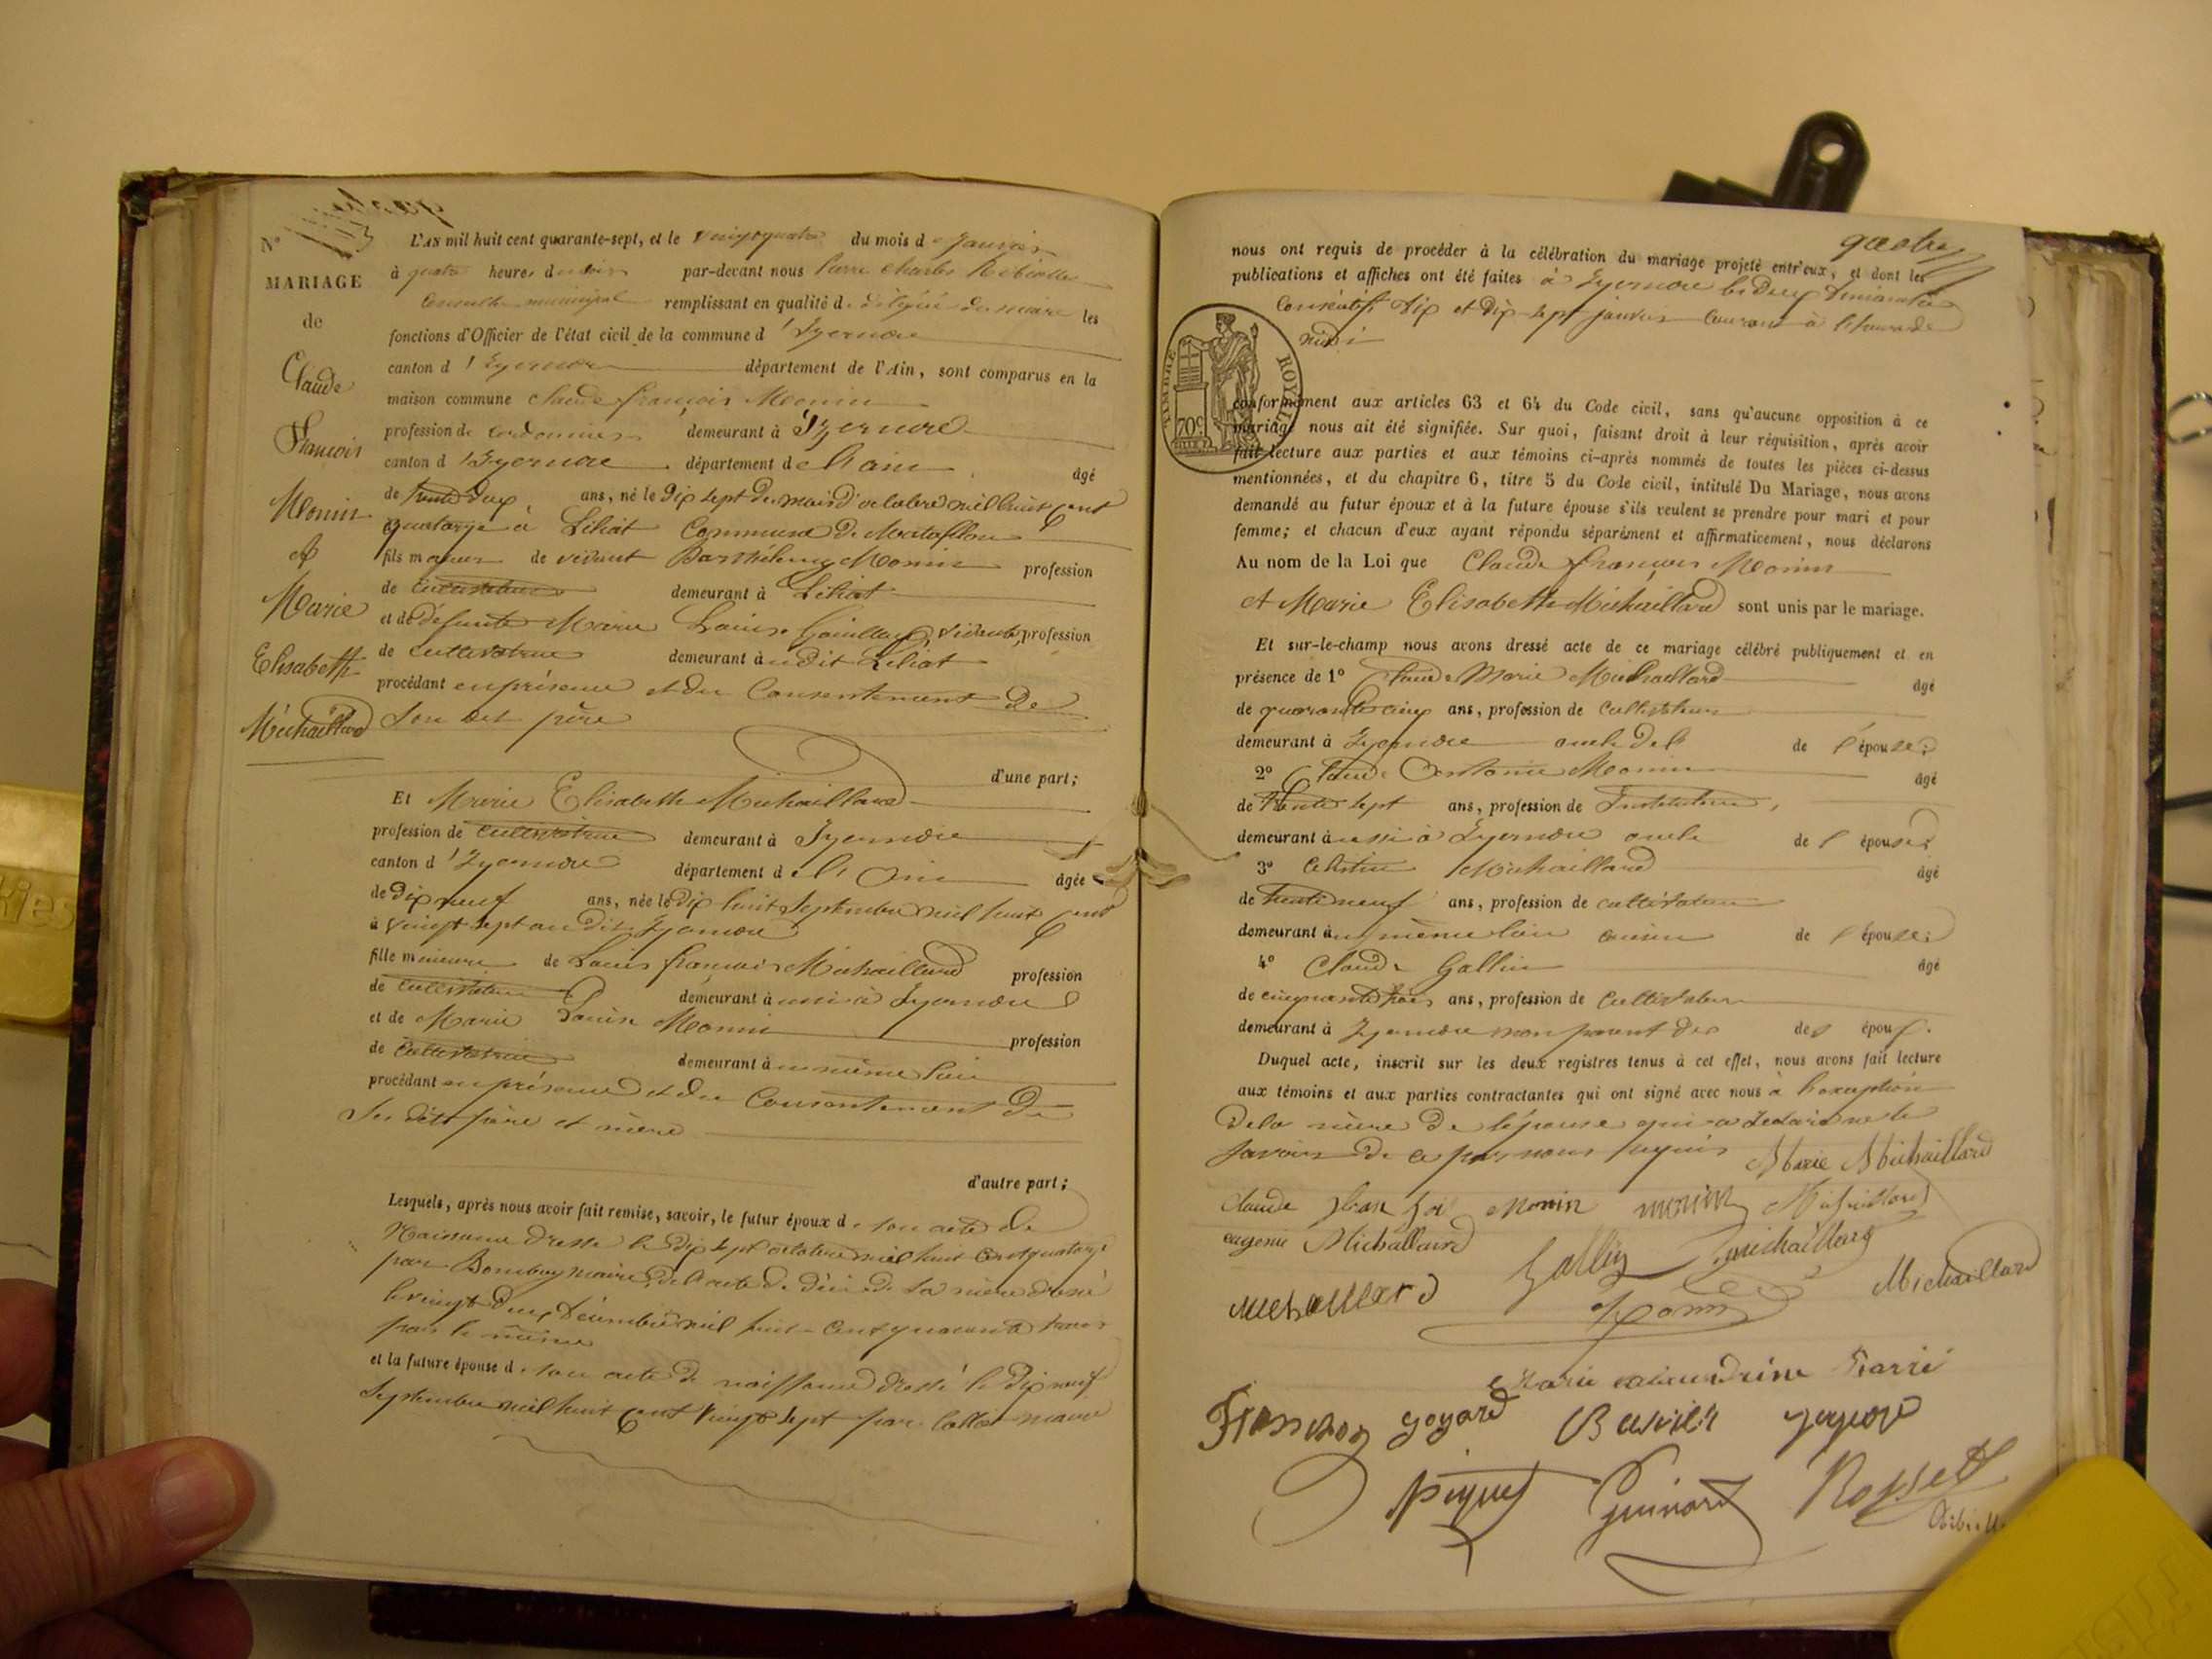 N°
MARIAGE
de
Claude
François
Monin
et
Marie
Elisabeth
Michaillard
L'AN mil huit cent quarante-sept, et le vingt quatre du mois d janvier
à quatre heures du soir par-devant nous Pierre Charles Rebiolle
Conseiller municipal remplissant en qualité de délégué du maire les
fonctions d'Officier de l'état civil de la commune d'Izernore
canton d'Izernore département de l'Ain, sont comparus en la
maison commune Claude françois Monin
profession de cordonnier demeurant à Izernore
canton d'Izernore département de l'ain âgé
de trente deux ans, né le dix sept du mois d'octobre mil huit cent
quatorze à Léliat Commune de Matafelon
fils majeur de vivant Barthélemy Monin profession
de cultivateur demeurant à Léliat
et de défunte Marie Louise vivante, profession
de cultivatrice demeurant au dit Léliat
procédant en présence et du Consentement de
Son dit père
d'une part;
Et Marie Elisabeth Michaillard
profession de cultivatrice demeurant à Izernore
canton d'Izernore département de l'Ain âgée
de dix neuf ans, née le dix huit Septembre mil huit cent
vingt sept au dit Izernore
fille mineure de Louis françois Michaillard profession
de cultivateur demeurant aussi à Izernore
et de Marie Louise Monin profession
de cultivatrice demeurant au même lieu
procédant en présence et du Consentement de
Ses dits père et mère
d'autre part;
Lesquels, après nous avoir fait remise, savoir, le futur époux de son acte de
Naissance dressé le dix sept octobre mil huit Cent quatorze
par maire, de l'acte de décès de sa mère dressé
le vingt deux décembre mil huit Cent quarante trois
par le même
et la future épouse de son acte de naissance dressé le dix neuf
Septembre mil huit Cent vingt sept par maire
quatre
nous ont requis de procéder à la célébration du mariage projeté entr'eux, et dont les
publications et affiches ont été faites à Izernore les deux dimanches
Consécutifs dix et dix-sept janvier Courant à l'heure de
midi
TIMBRE ROYAL
70c
conformément aux articles 63 et 64 du Code civil, sans qu'aucune opposition à ce
mariage nous ait été signifiée. Sur quoi, faisant droit à leur réquisition, après avoir
fait lecture aux parties et aux témoins ci-après nommés de toutes les pièces ci-dessus
mentionnées, et du chapitre 6, titre 5 du Code civil, intitulé Du Mariage, nous avons
demandé au futur époux et à la future épouse s'ils veulent se prendre pour mari et pour
femme; et chacun d'eux ayant répondu séparément et affirmativement, nous déclarons
Au nom de la Loi que Claude françois Monin
et Marie Elisabeth Michaillard sont unis par le mariage.
Et sur-le-champ nous avons dressé acte de ce mariage célébré publiquement et en
présence de 1° Claude Marie Michaillard âgé
de quarante cinq ans, profession de Cultivateur
demeurant à Izernore oncle de l'épouse;
2° Claude Antoine Monin âgé
de trente sept ans, profession de Instituteur,
demeurant aussi à Izernore oncle de l'épouse;
3° Célestin Michaillard âgé
de trente neuf ans, profession de cultivateur
demeurant au même lieu cousin de l'épouse;
4° Claude Gallin âgé
de cinquante trois ans, profession de Cultivateur
demeurant à Izernore non parent des des époux.
Duquel acte, inscrit sur les deux registres tenus à cet effet, nous avons fait lecture
aux témoins et aux parties contractantes qui ont signé avec nous à l'exception
de la mère de l'épouse qui a déclaré ne le
Savoir de ce par nous requis Marie Michaillard
Claude Monin monin Michaillard
eugenie Michallard Gallin Michaillard
Michaillard Monin Michaillard
Marie
goyard
Piquet Guinard Rosset